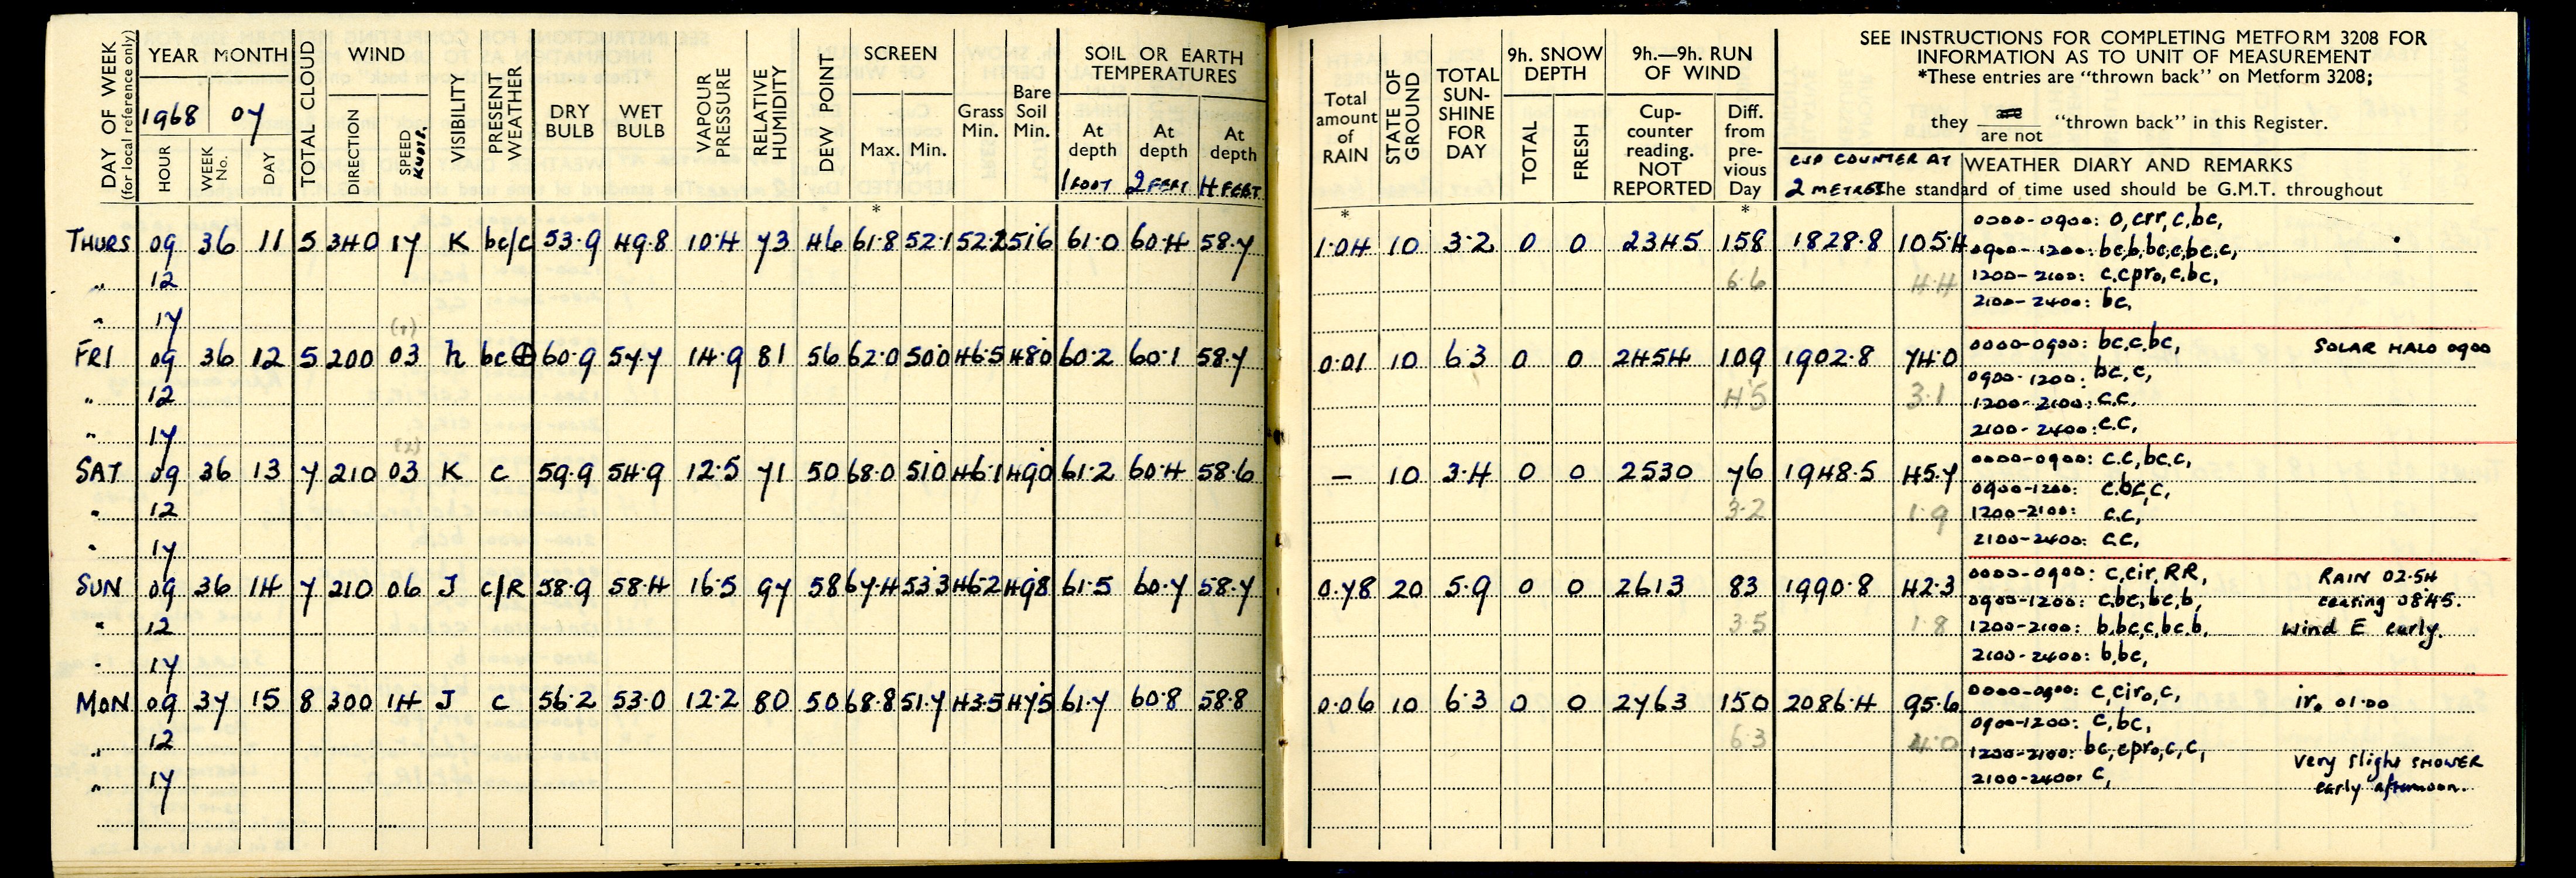 DAY OF WEEK (for local reference only) YEAR MONTH TOTAL CLOUD WIND VISIBILITY PRESENT WEATHER DRY BULB WET BULB VAPOUR PRESSURE RELATIVE HUMIDITY DEW POINT SCREEN Grass Min. Bare Soil Min. SOIL OR EARTH TEMPERATURES
1968 07
HOUR WEEK No. DAY DIRECTION SPEED KNOTS. Max. Min. At depth At depth At depth
1 FOOT 2 FEET 4 FEET
*
THURS 09 36 11 5 340 17 K bc/c 53.9 49.8 10.4 73 46 61.8 52.1 52.2 51.6 61.0 60.4 58.7
" 12
" 17
(1)
FRI 09 36 12 5 200 03 h bc⊕ 60.9 57.7 14.9 81 56 62.0 50.0 46.5 48.0 60.2 60.1 58.7
" 12
" 17
(2)
SAT 09 36 13 7 210 03 K c 59.9 54.9 12.5 71 50 68.0 51.0 46.1 49.0 61.2 60.4 58.6
" 12
" 17
SUN 09 36 14 7 210 06 J c/R 58.9 58.4 16.5 97 58 67.4 53.3 46.2 49.8 61.5 60.7 58.7
" 12
" 17
MON 09 37 15 8 300 14 J c 56.2 53.0 12.2 80 50 68.8 51.7 43.5 47.5 61.7 60.8 58.8
" 12
" 17
Total amount of RAIN STATE OF GROUND TOTAL SUN-SHINE FOR DAY 9h. SNOW DEPTH 9h.—9h. RUN OF WIND
TOTAL FRESH Cup-counter reading. NOT REPORTED Diff. from pre-vious Day
SEE INSTRUCTIONS FOR COMPLETING METFORM 3208 FOR
INFORMATION AS TO UNIT OF MEASUREMENT
*These entries are "thrown back" on Metform 3208;
they are / are not "thrown back" in this Register.
CUP COUNTER AT WEATHER DIARY AND REMARKS
2 METRES The standard of time used should be G.M.T. throughout
* *
0000-0900: o,crr,c,bc,
1.04 10 3.2 0 0 2345 158 1828.8 105.4 0900-1200: bc,b,bc,c,bc,c,
6.6 4.4 1200-2100: c.cpro,c.bc,
2100-2400: bc,
0000-0900: bc.c.bc, SOLAR HALO 0900
0.01 10 6.3 0 0 2454 109 1902.8 74.0
0900-1200: bc,c,
4.5 3.1 1200-2100: c.c,
2100-2400: c.c,
0000-0900: c.c,bc.c,
— 10 3.4 0 0 2530 76 1948.5 45.7
0900-1200: c.bc,c,
3.2 1.9 1200-2100: c.c,
2100-2400: c.c,
0000-0900: c,cir,RR, RAIN 02.54
0.78 20 5.9 0 0 2613 83 1990.8 42.3
0900-1200: c.bc,bc,b, ceasing 0845.
3.5 1.8 1200-2100: b.bc,c,bc.b, wind E early.
2100-2400: b,bc,
0000-0900: c,ciro,c, iro 01.00
0.06 10 6.3 0 0 2763 150 2086.4 95.6
0900-1200: c,bc,
6.3 4.0 1200-2100: bc,cpro,c,c,
very slight SHOWER
2100-2400: c,
early afternoon.